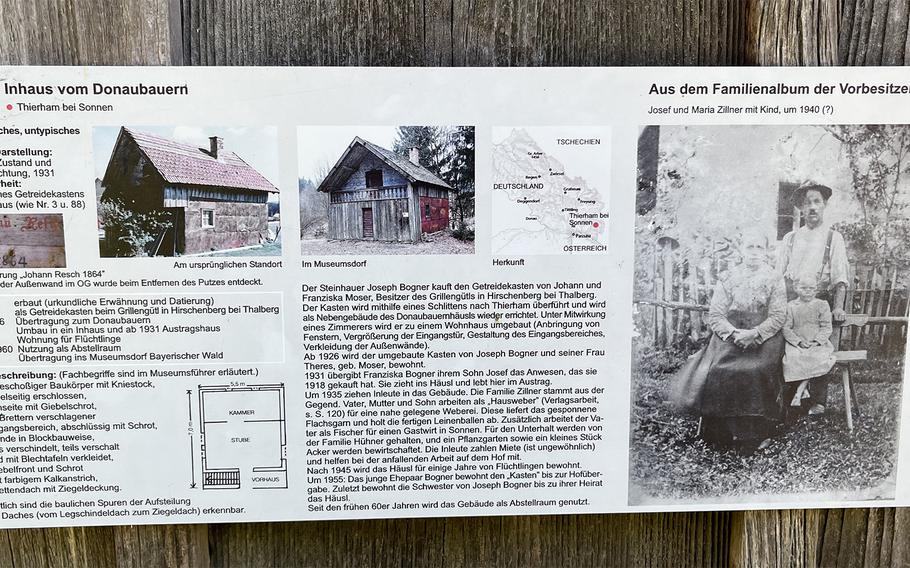 Inhaus vom Donaubauern
Thierham bei Sonnen
ches, untypisches
arstellung:
Zustand und
chtung, 1931
rheit:
nes Getreidekastens
aus (wie Nr. 3 u. 88)
1864
rung „Johann Resch 1864“
der Außenwand im OG wurde beim Entfernen des Putzes entdeckt.
erbaut (urkundliche Erwähnung und Datierung)
als Getreidekasten beim Grillengütl in Hirschenberg bei Thalberg
6 Übertragung zum Donaubauern
Umbau in ein Inhaus und ab 1931 Austragshaus
Wohnung für Flüchtlinge
960 Nutzung als Abstellraum
Übertragung ins Museumsdorf Bayerischer Wald
schreibung: (Fachbegriffe sind im Museumsführer erläutert.)
eschoßiger Baukörper mit Kniestock,
elseitig erschlossen,
nseite mit Giebelschrot,
Brettern verschlagener
gangsbereich, abschlüssig mit Schrot,
nde in Blockbauweise,
s verschindelt, teils verschalt
d mit Blechtafeln verkleidet,
ebelfront und Schrot
t farbigem Kalkanstrich,
ettendach mit Ziegeldeckung.
tlich sind die baulichen Spuren der Aufsteilung
Daches (vom Legschindeldach zum Ziegeldach) erkennbar.
Am ursprünglichen Standort
5,5 m
7,0 m
KAMMER
STUBE
VORHAUS
Im Museumsdorf
TSCHECHIEN
DEUTSCHLAND
Zwiesel
Regen
Grafenau
Deggendorf
Freyung
Tittling
Donau
Thierham bei
Sonnen
Passau
ÖSTERREICH
Herkunft
Der Steinhauer Joseph Bogner kauft den Getreidekasten von Johann und
Franziska Moser, Besitzer des Grillengütls in Hirschenberg bei Thalberg.
Der Kasten wird mithilfe eines Schlittens nach Thierham überführt und wird
als Nebengebäude des Donaubauernhäusls wieder errichtet. Unter Mitwirkung
eines Zimmerers wird er zu einem Wohnhaus umgebaut (Anbringung von
Fenstern, Vergrößerung der Eingangstür, Gestaltung des Eingangsbereiches,
Verkleidung der Außenwände).
Ab 1926 wird der umgebaute Kasten von Joseph Bogner und seiner Frau
Theres, geb. Moser, bewohnt.
1931 übergibt Franziska Bogner ihrem Sohn Josef das Anwesen, das sie
1918 gekauft hat. Sie zieht ins Häusl und lebt hier im Austrag.
Um 1935 ziehen Inleute in das Gebäude. Die Familie Zillner stammt aus der
Gegend. Vater, Mutter und Sohn arbeiten als „Hausweber“ (Verlagsarbeit,
s. S. 120) für eine nahe gelegene Weberei. Diese liefert das gesponnene
Flachsgarn und holt die fertigen Leinenballen ab. Zusätzlich arbeitet der Va-
ter als Fischer für einen Gastwirt in Sonnen. Für den Unterhalt werden von
der Familie Hühner gehalten, und ein Pflanzgarten sowie ein kleines Stück
Acker werden bewirtschaftet. Die Inleute zahlen Miete (ist ungewöhnlich)
und helfen bei der anfallenden Arbeit auf dem Hof mit.
Nach 1945 wird das Häusl für einige Jahre von Flüchtlingen bewohnt.
Um 1955: Das junge Ehepaar Bogner bewohnt den „Kasten“ bis zur Hofüber-
gabe. Zuletzt bewohnt die Schwester von Joseph Bogner bis zu ihrer Heirat
das Häusl.
Seit den frühen 60er Jahren wird das Gebäude als Abstellraum genutzt.
Aus dem Familienalbum der Vorbesitzer
Josef und Maria Zillner mit Kind, um 1940 (?)